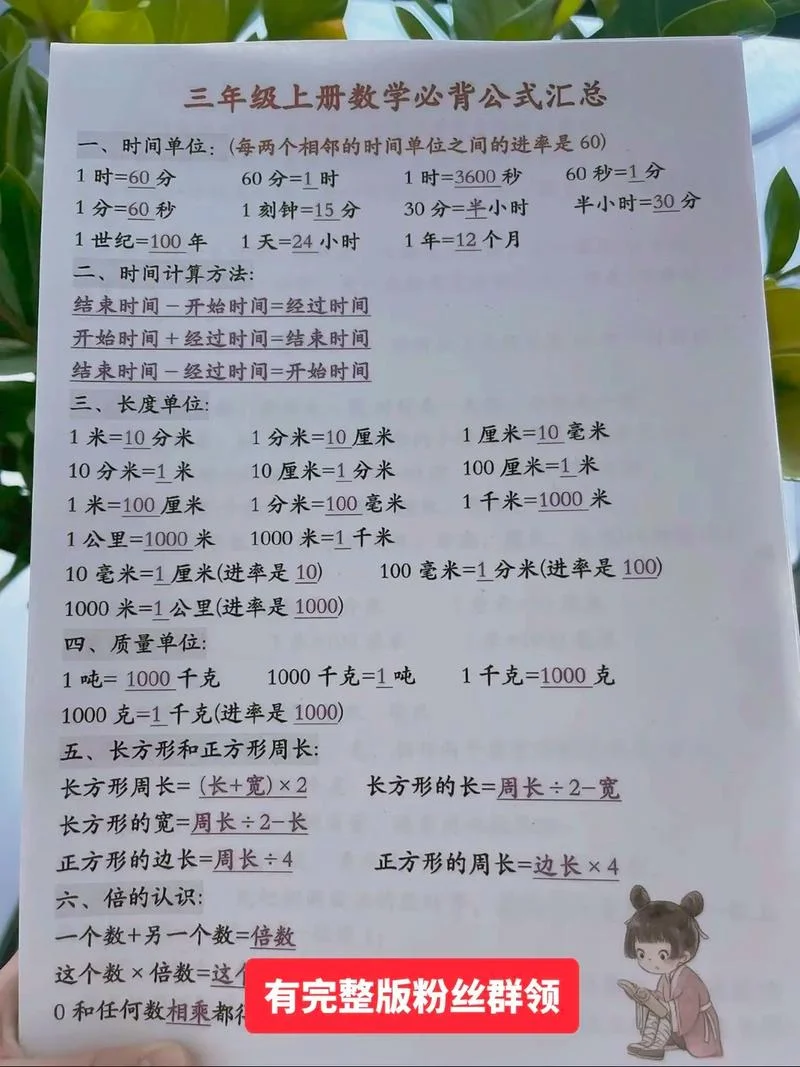 三年级上册数学必背公式汇总
一、时间单位:(每两个相邻的时间单位之间的进率是 60)
1 时=60 分 60 分=1 时 1 时=3600 秒 60 秒=1 分
1 分=60 秒 1 刻钟=15 分 30 分=半小时 半小时=30 分
1 世纪=100 年 1 天=24 小时 1 年=12 个月
二、时间计算方法:
结束时间－开始时间=经过时间
开始时间＋经过时间=结束时间
结束时间－经过时间=开始时间
三、长度单位:
1 米=10 分米 1 分米=10 厘米 1 厘米=10 毫米
10 分米=1 米 10 厘米=1 分米 100 厘米=1 米
1 米=100 厘米 1 分米=100 毫米 1 千米=1000 米
1 公里=1000 米 1000 米=1 千米
10 毫米=1 厘米(进率是 10) 100 毫米=1 分米(进率是 100)
1000 米=1 公里(进率是 1000)
四、质量单位:
1 吨= 1000 千克 1000 千克=1 吨 1 千克=1000 克
1000 克=1 千克(进率是 1000)
五、长方形和正方形周长:
长方形周长= (长+宽)×2 长方形的长=周长÷2－宽
长方形的宽=周长÷2－长
正方形的边长=周长÷4 正方形的周长=边长×4
六、倍的认识:
一个数+另一个数=倍数
这个数×倍数=这个
0 和任何数相乘都
有完整版粉丝群领